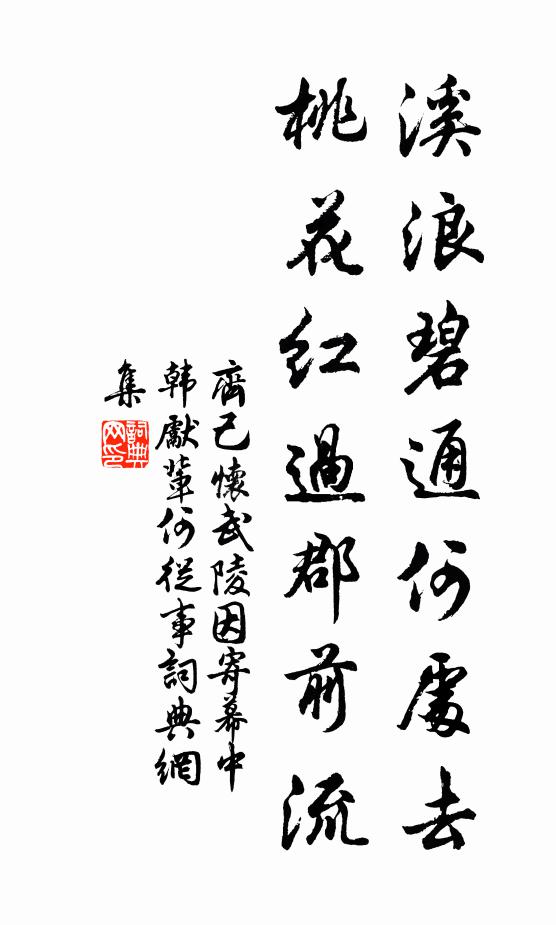 溪浪碧通何處去
桃花紅過郡前流
齊己懷武陵因寄幕中
韩獻輩何從事詞典網
集
詞典
网印